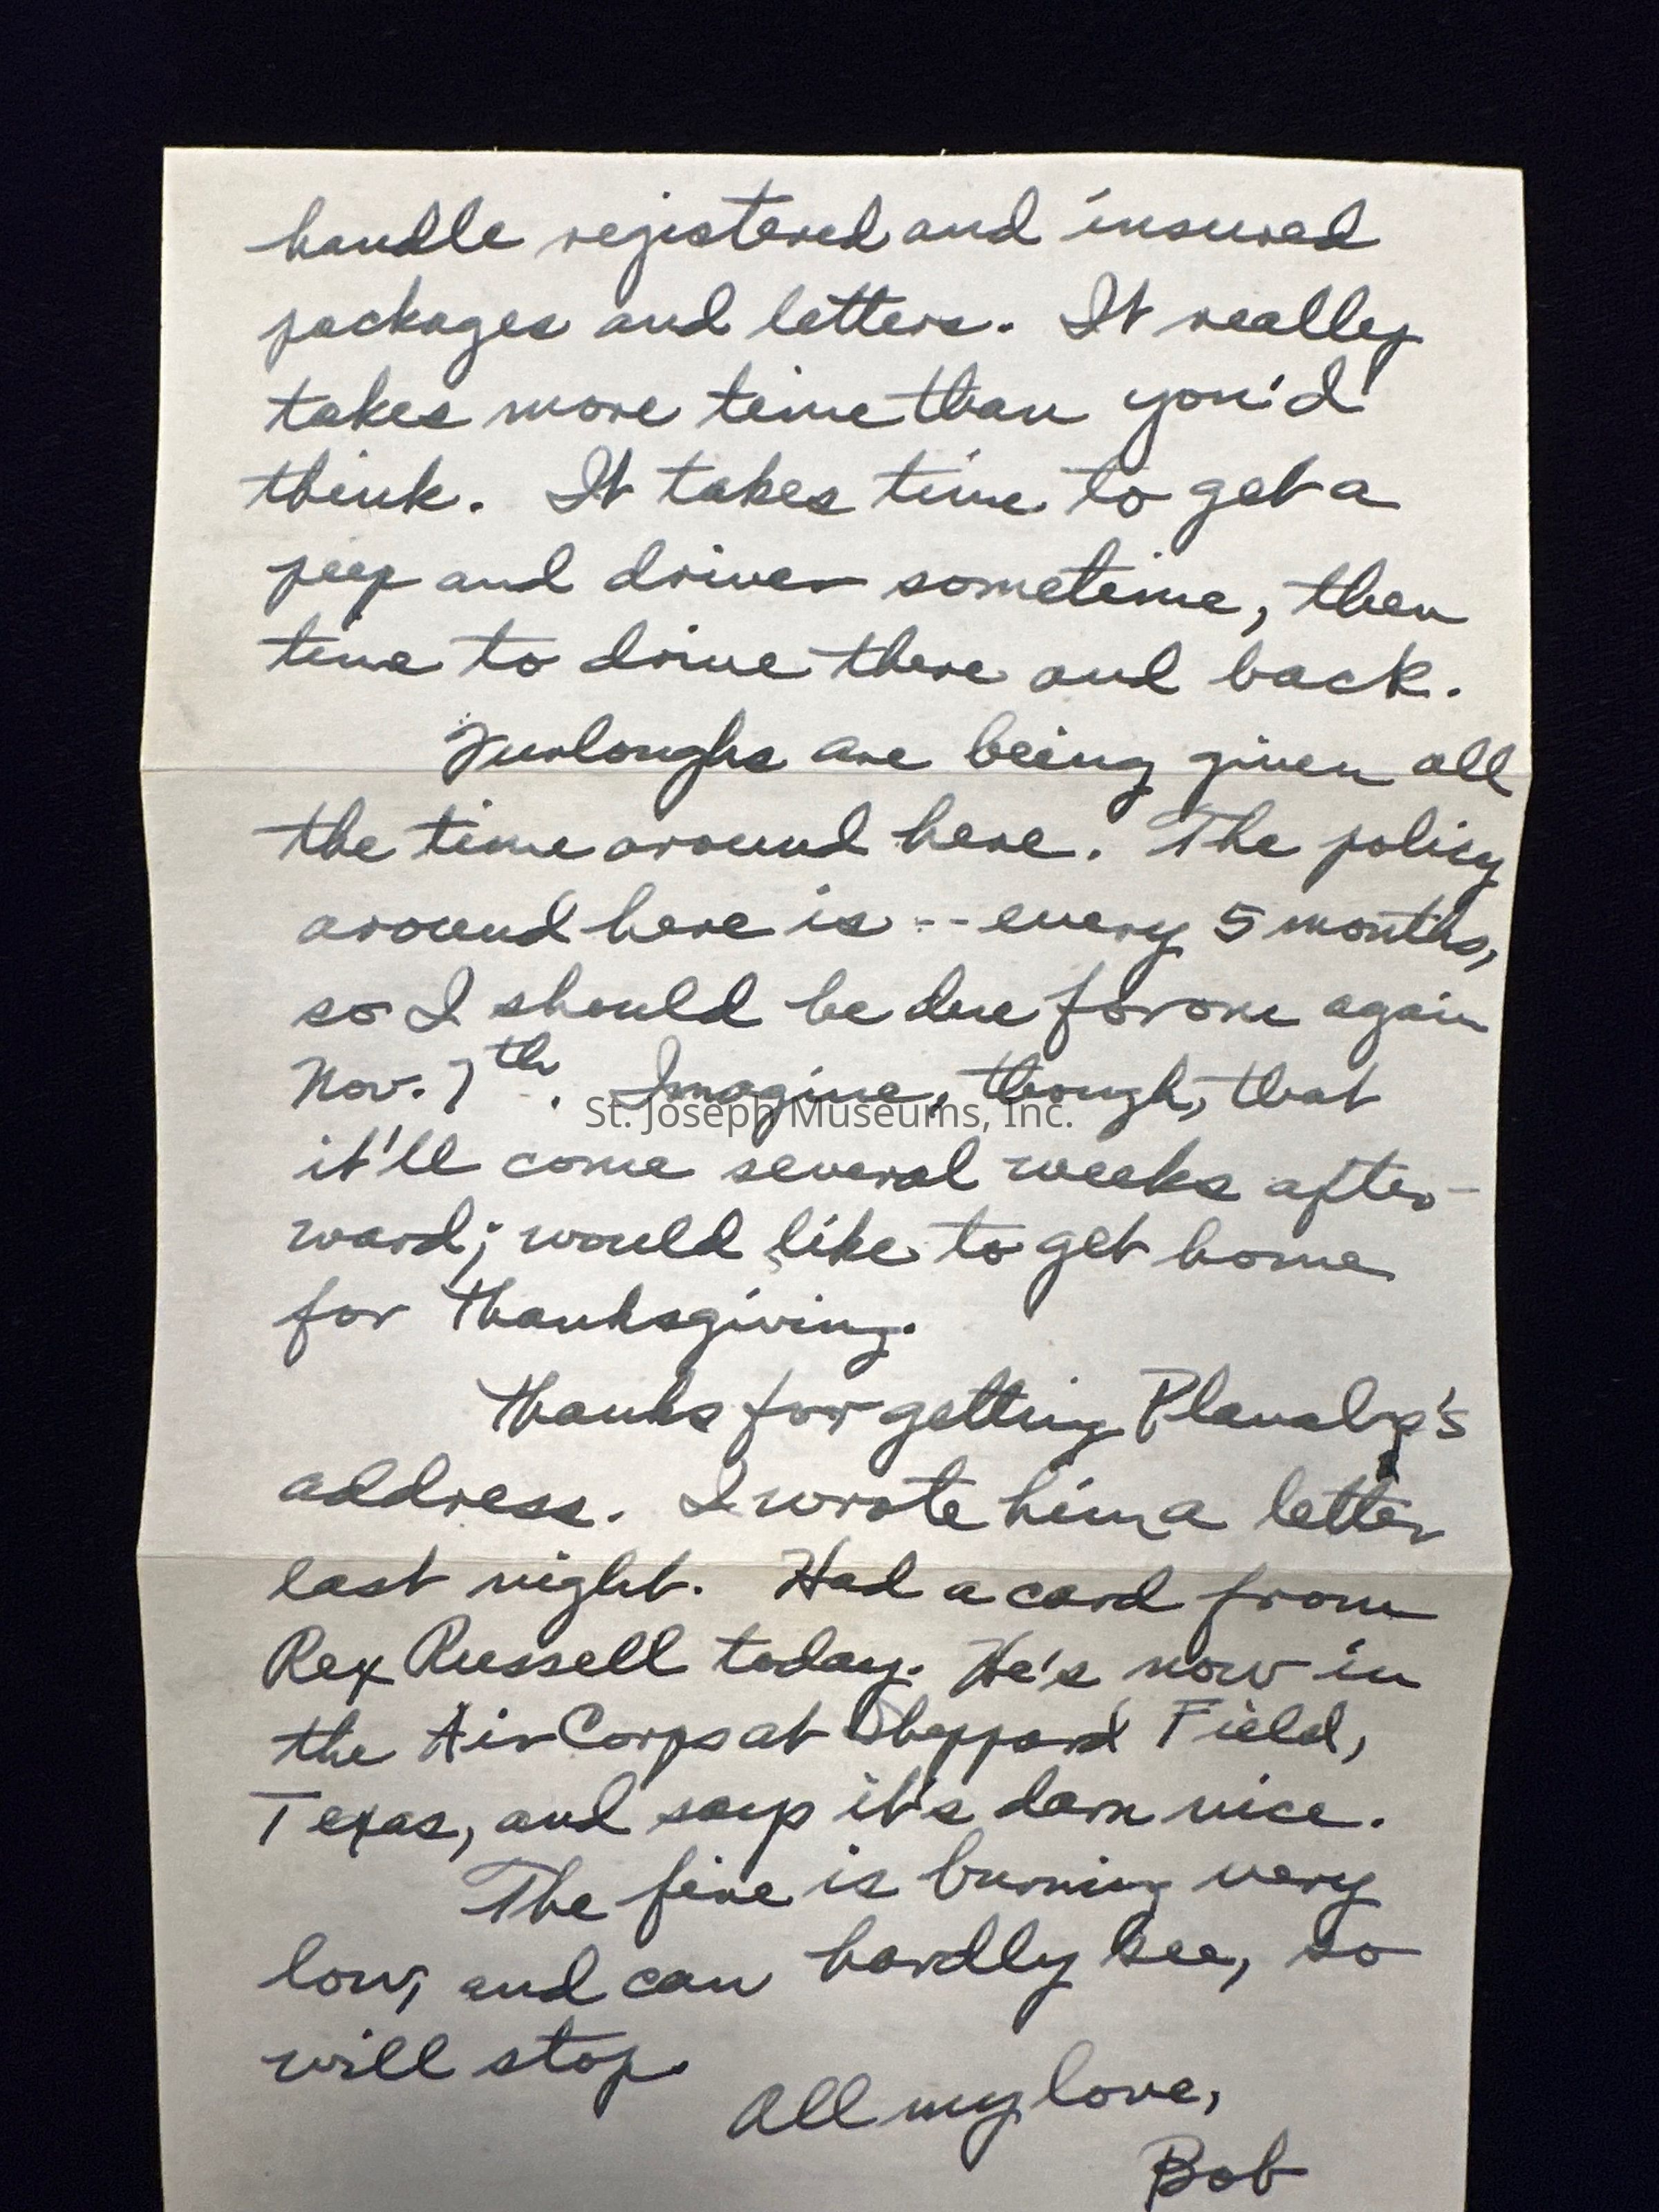 handle registered and insured
packages and letters. It really
takes more time than you'd
think. It takes time to get a
peep and driver sometime, then
time to drive there and back.
Furloughs are being given all
the time around here. The policy
around here is -- every 5 months,
so I should be due for one again
Nov. 7th. Imagine, though, that
St. Joseph Museums, Inc.
it'll come several weeks after-
ward; would like to get home
for Thanksgiving.
Thanks for getting
address. I wrote him a letter
last night. Had a card from
Rex Russell today. He's now in
the Air Corps at Sheppard Field,
Texas, and says it's darn nice.
The fire is burning very
low, and can hardly see, so
will stop.
All my love,
Bob